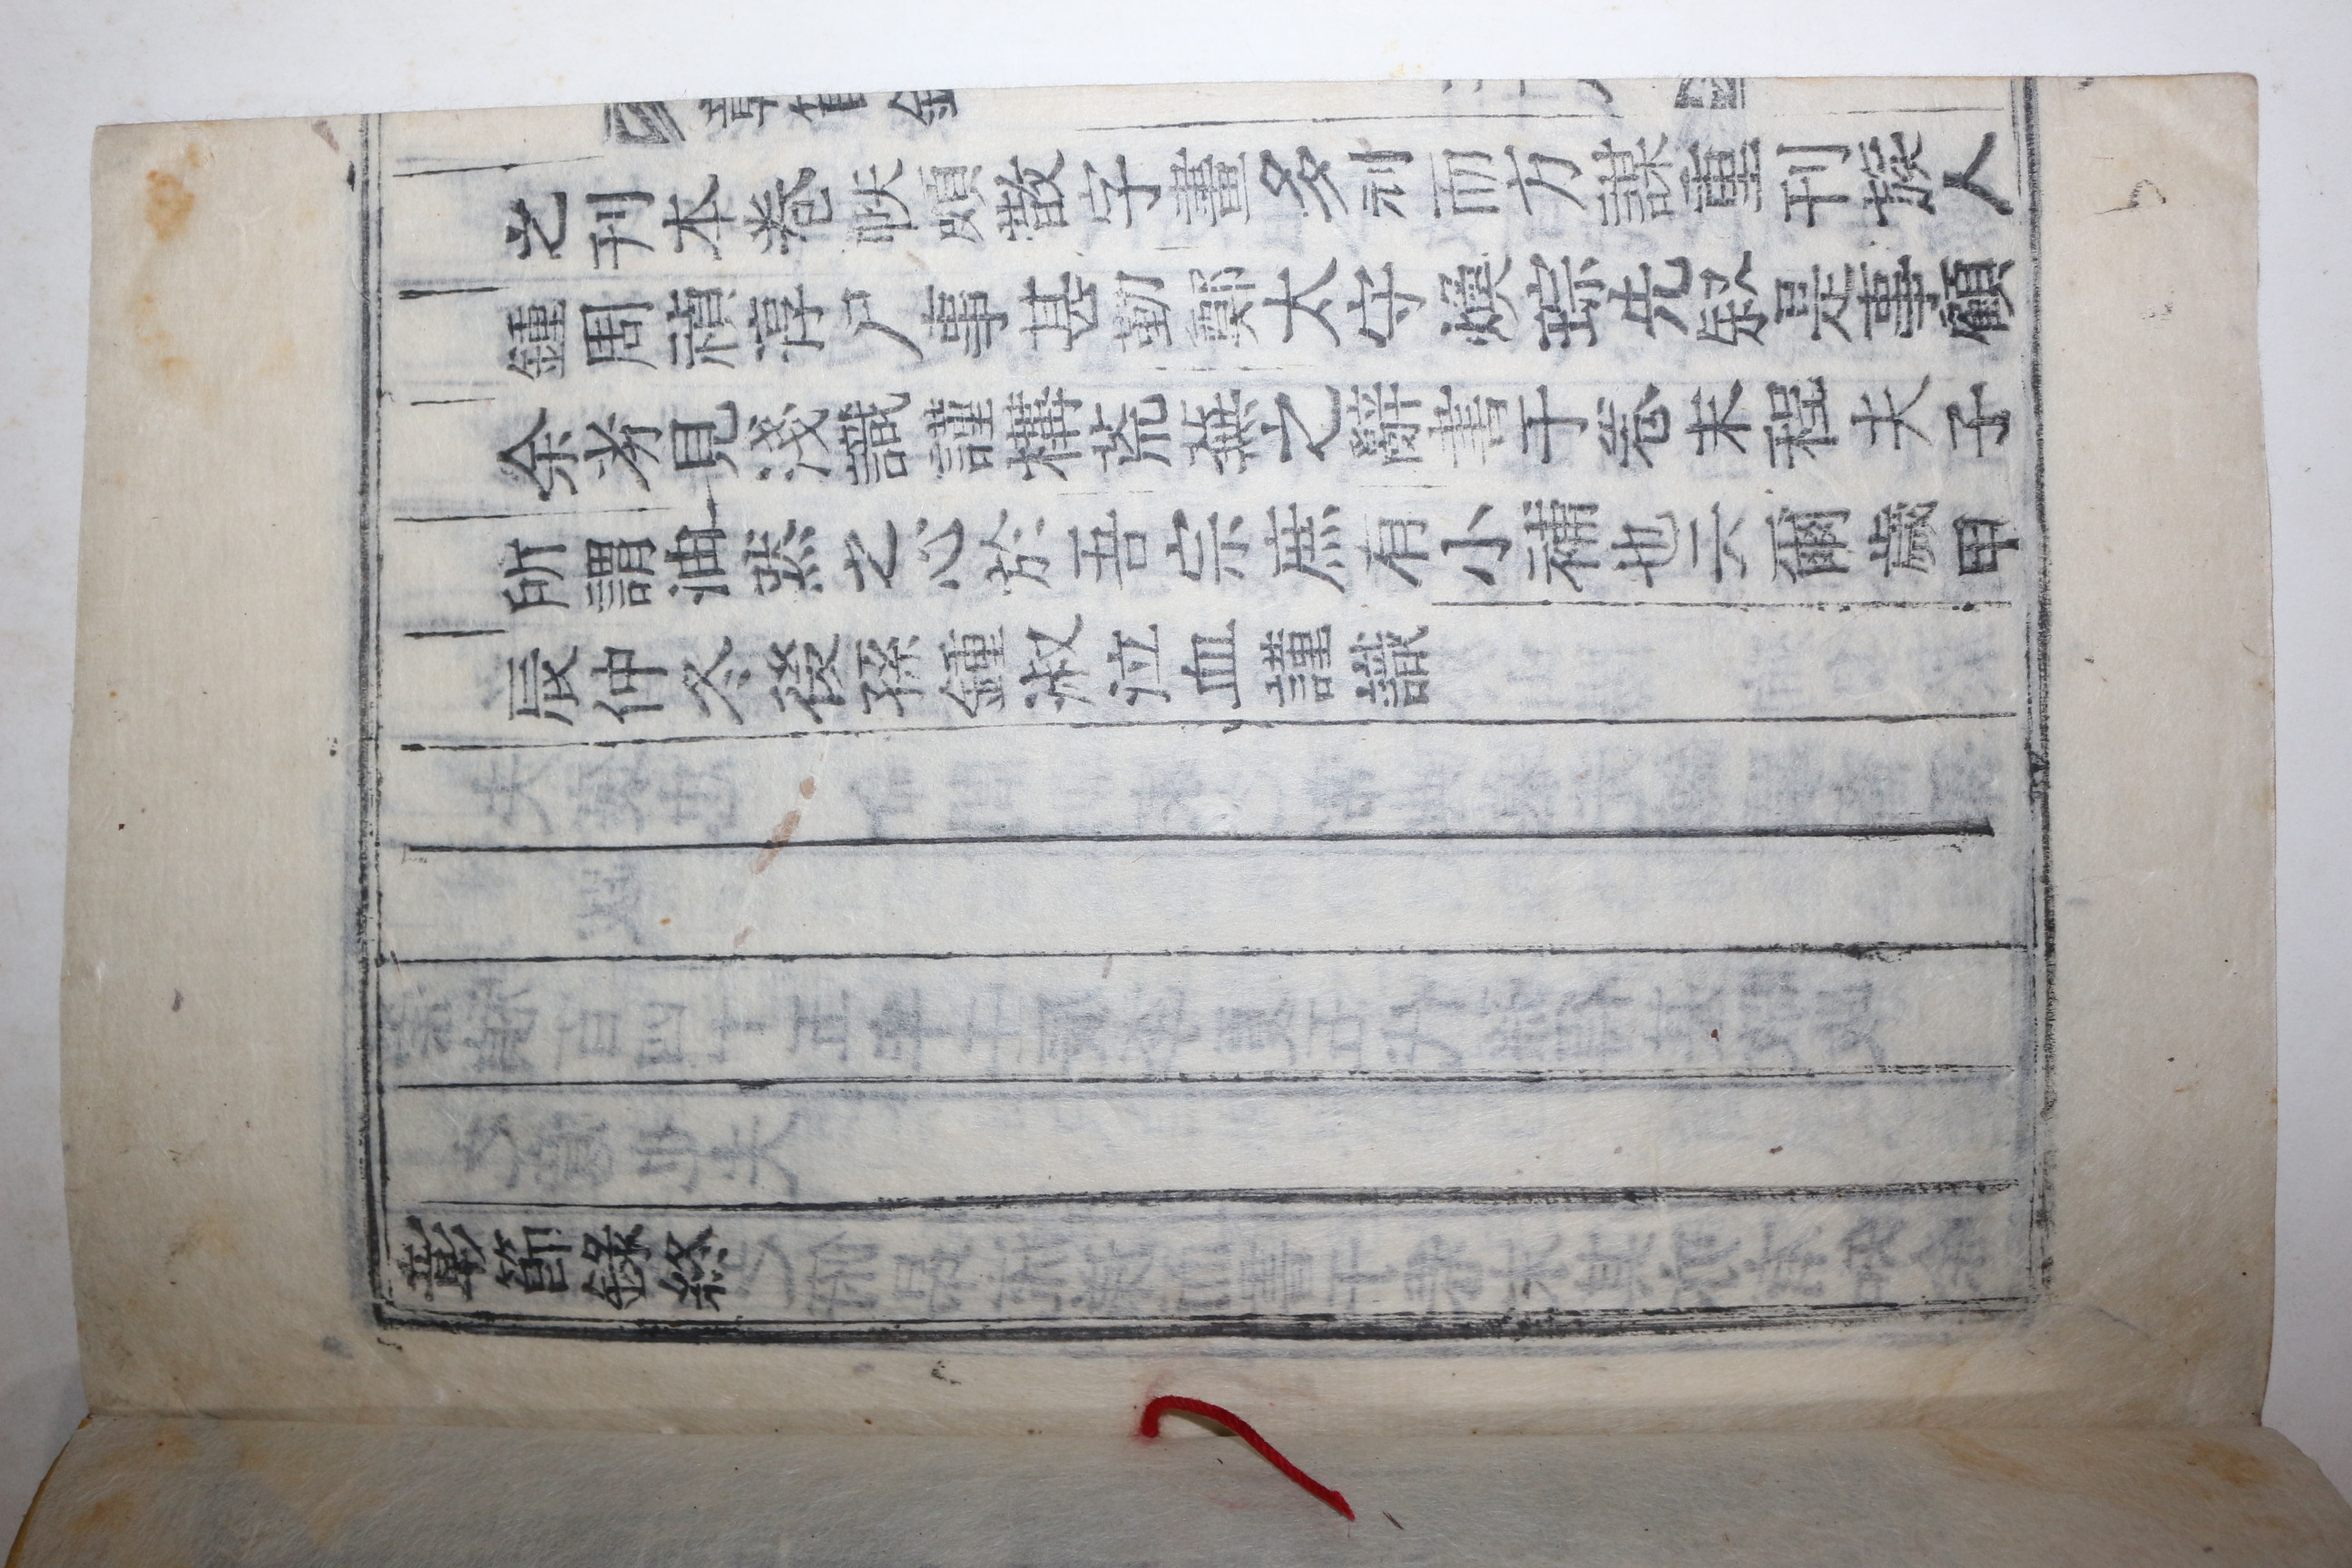 彰節錄
之刊本卷帙頗散字畫多刓而方謀重刊族人
鍾周禎淳尸事甚勤鄭太守煥琮先叙是事顧
余劣見淺識謹構荒蕪之辭書于卷末程夫子
所謂油然之心於吾宗庶有小補也云爾歲甲
辰仲冬後孫鍾淑泣血謹識
彰節錄終